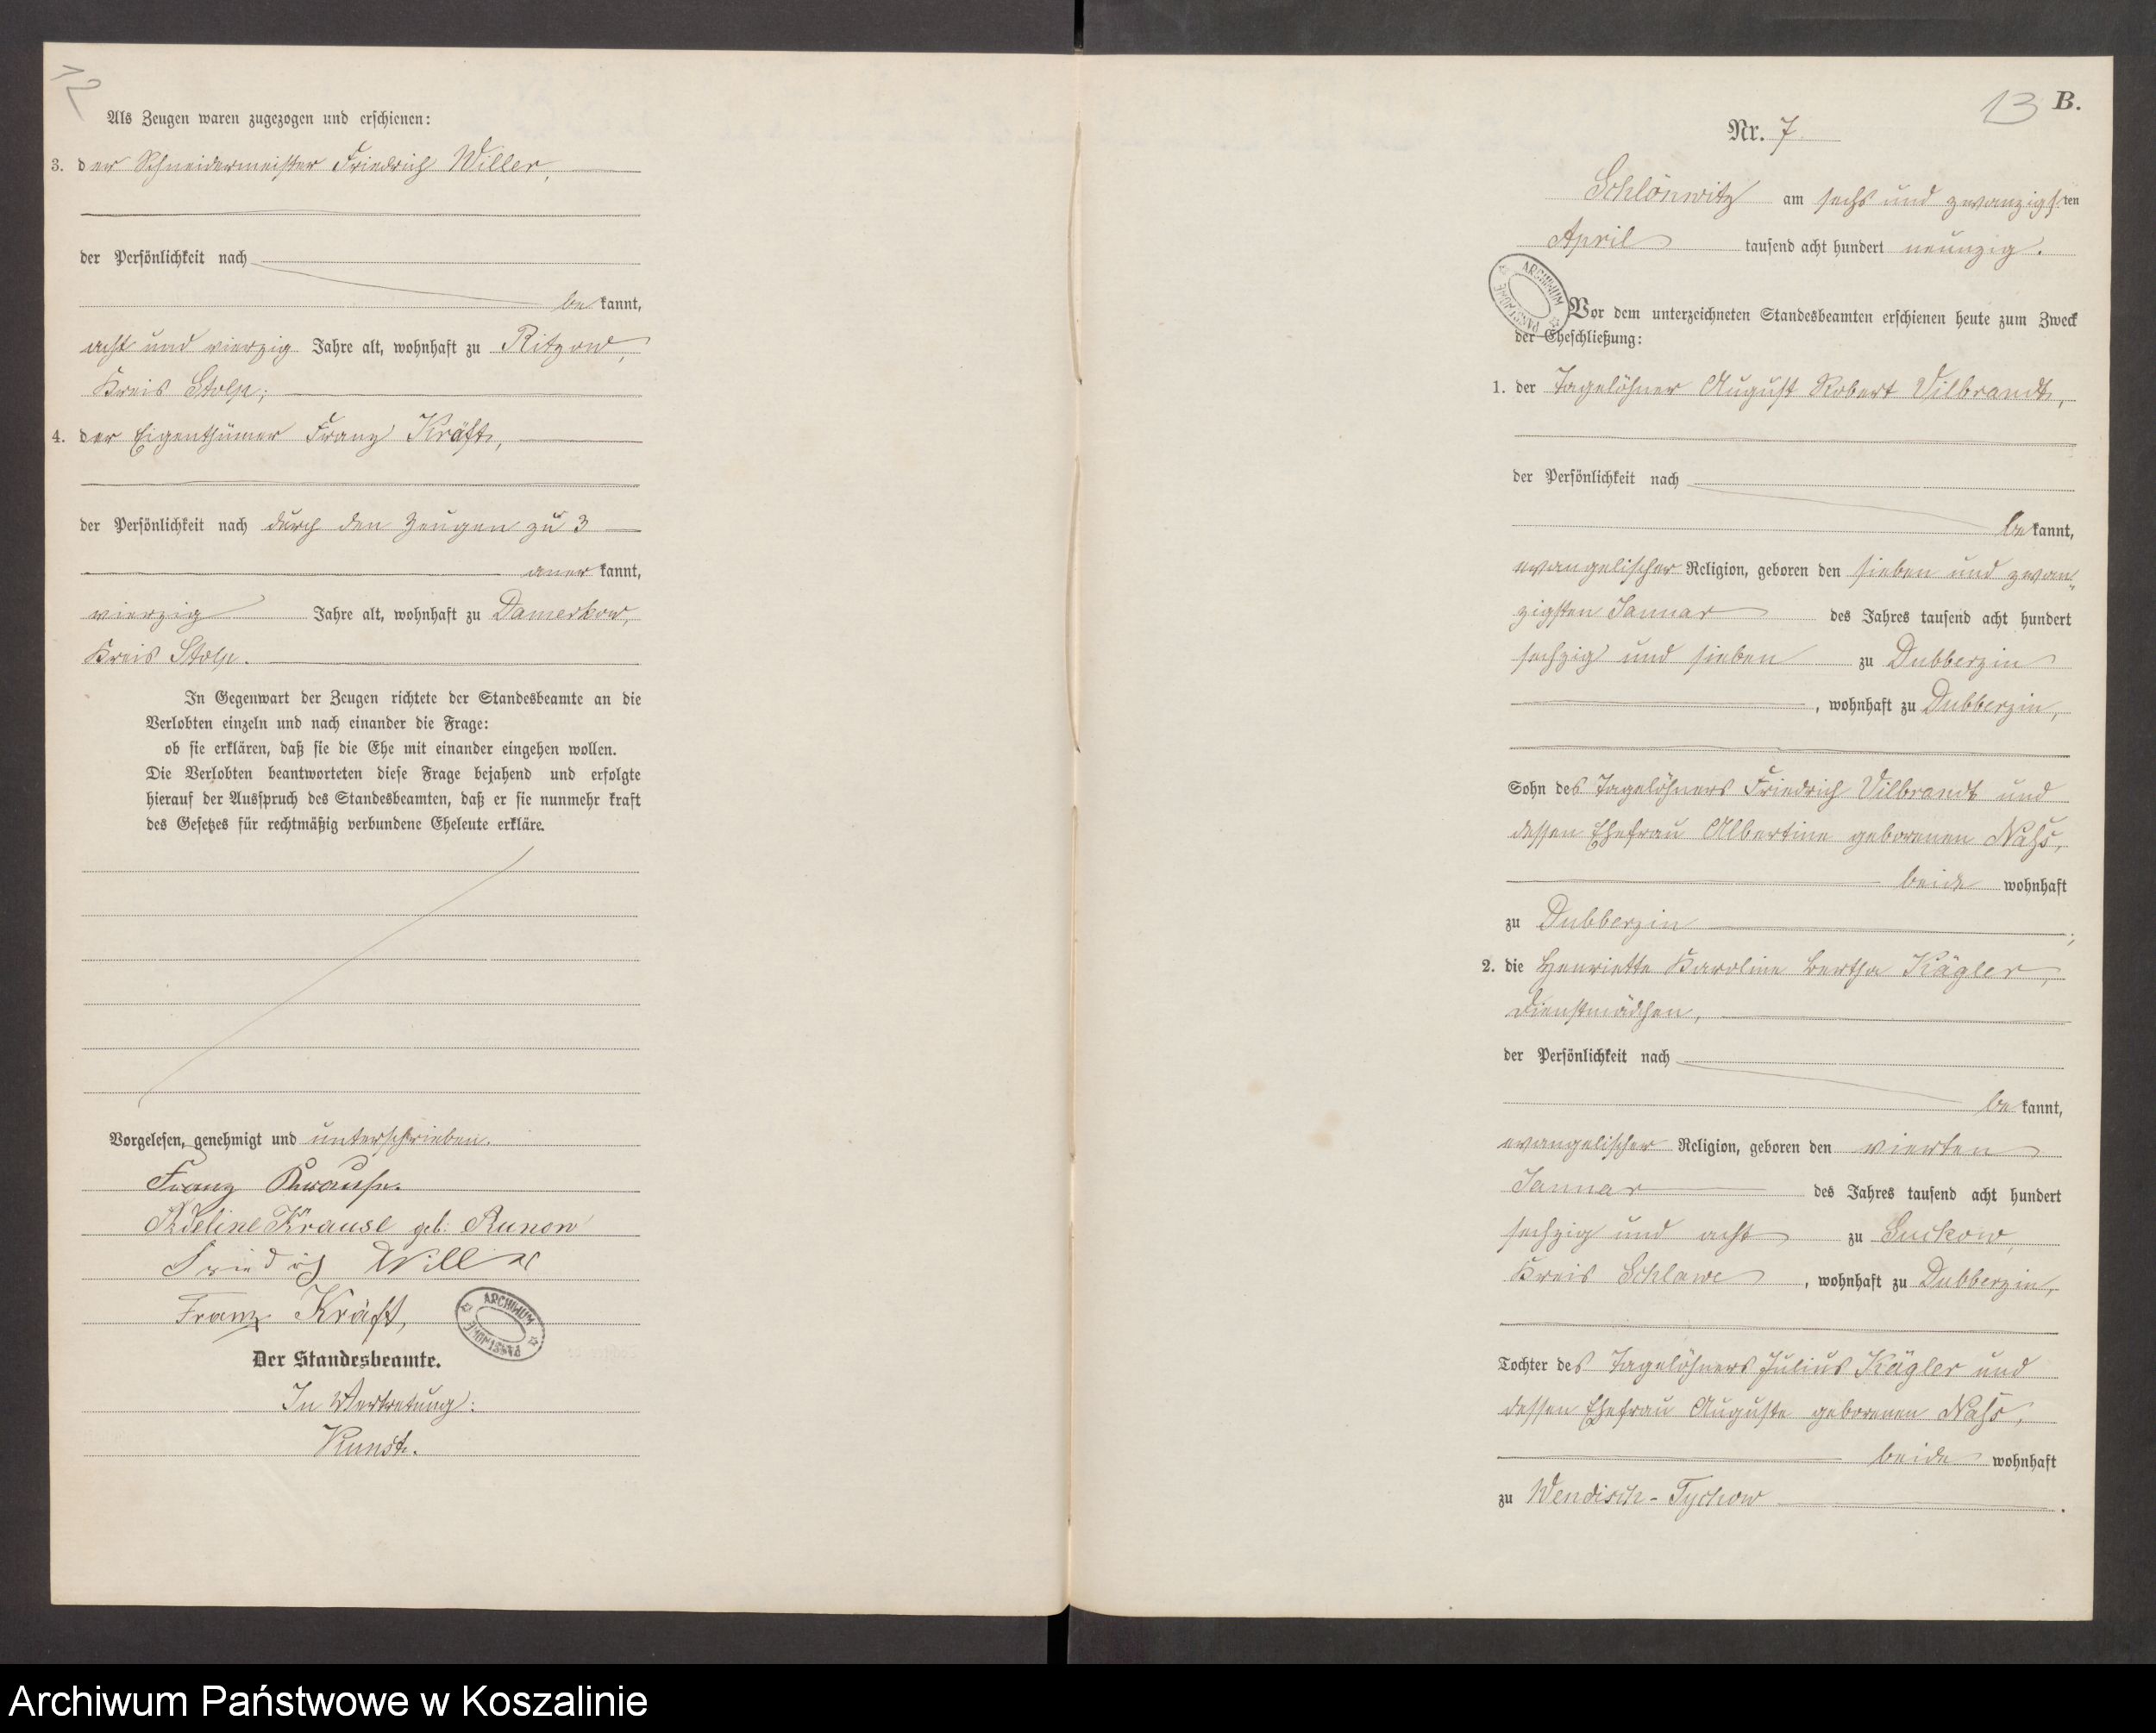 Als Zeugen waren zugezogen und erschienen:
3. der Schneidermeister Friedrich Willer,
der Persönlichkeit nach
be kannt,
acht und vierzig Jahre alt, wohnhaft zu Ritzow,
Kreis Stolp;
4. der Eigenthümer Franz Kräft,
der Persönlichkeit nach durch den Zeugen zu 3
aner kannt,
vierzig Jahre alt, wohnhaft zu Damerkow,
Kreis Stolp.
In Gegenwart der Zeugen richtete der Standesbeamte an die
Verlobten einzeln und nach einander die Frage:
ob sie erklären, daß sie die Ehe mit einander eingehen wollen.
Die Verlobten beantworteten diese Frage bejahend und erfolgte
hierauf der Ausspruch des Standesbeamten, daß er sie nunmehr kraft
des Gesetzes für rechtmäßig verbundene Eheleute erkläre.
Vorgelesen, genehmigt und unterschrieben.
Franz Krause.
Adeline Krause geb: Runow
Friedrich Willer
Franz Kräft,
ARCHIWUM PAŃSTWOWE
Der Standesbeamte.
In Vertretung:
Kunst.
13 B.
Nr. 7
Schlönwitz am sechs und zwanzigsten
April tausend acht hundert neunzig.
ARCHIWUM PAŃSTWOWE
Vor dem unterzeichneten Standesbeamten erschienen heute zum Zweck
der Eheschließung:
1. der Tagelöhner August Robert Vilbrandt,
der Persönlichkeit nach
be kannt,
evangelischer Religion, geboren den sieben und zwan-
zigsten Januar des Jahres tausend acht hundert
sechzig und sieben zu Dubberzin
, wohnhaft zu Dubberzin,
Sohn des Tagelöhners Friedrich Vilbrandt und
dessen Ehefrau Albertine geborenen Nahs,
beide wohnhaft
zu Dubberzin ;
2. die Henriette Karoline Bertha Kägler,
Dienstmädchen,
der Persönlichkeit nach
be kannt,
evangelischer Religion, geboren den vierten
Januar des Jahres tausend acht hundert
sechzig und acht zu Suckow,
Kreis Schlawe , wohnhaft zu Dubberzin,
Tochter des Tagelöhners Julius Kägler und
dessen Ehefrau Auguste geborenen Nahs,
beide wohnhaft
zu Wendisch-Tychow .
Archiwum Państwowe w Koszalinie